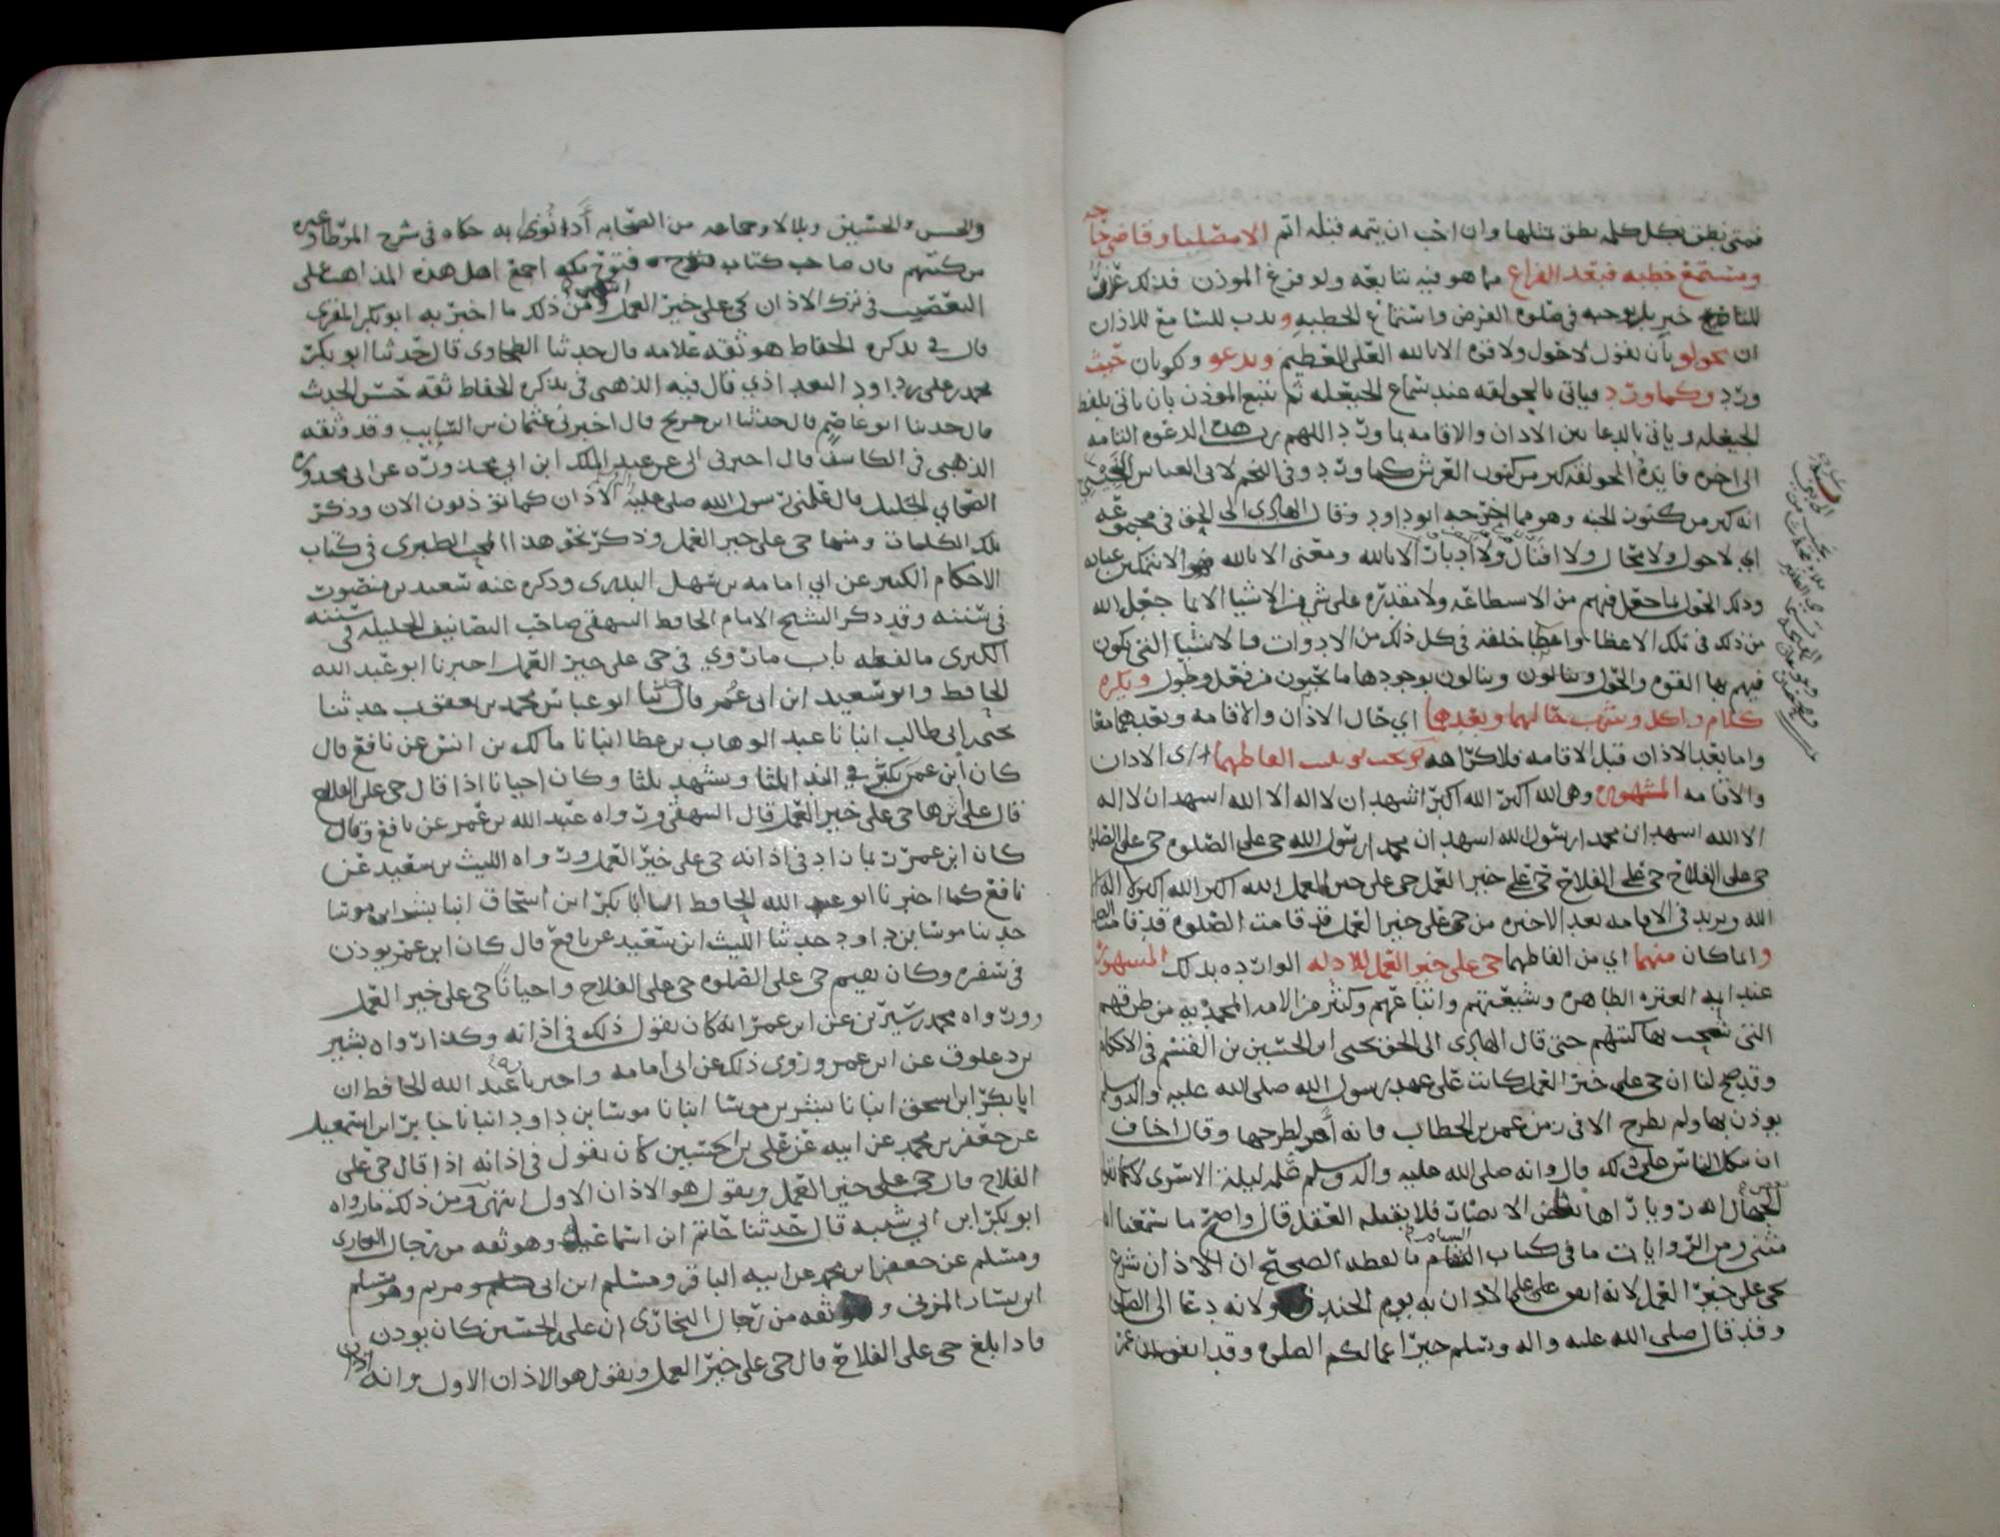 فمتى نطق بكل كلمه نطق بمثلها وان احب ان يتمه قبله اتم الا مصليا وقاضي حاجه
ومستمع خطبه فبعد الفراغ مما هو فيه يتابعه ولو فرغ الموذن
في صلوه الفرض واستماع الخطبه وندب للسامع للاذان
ان يحولق بان يقول لا حول ولا قوه الا بالله العلي العظيم ويدعو ويكونان حيث
ورد وكما ورد وياتي بالحولقه عند سماع الحيعله ثم يتبع الموذن بان ياتي بلفظ
الحيعله وياتي بالدعا بين الاذان والاقامه بما ورد اللهم رب هذه الدعوه التامه
الى اخره فايده الحولقه كنز من كنوز العرش كما ورد وفي النجم لابي العباس
انه كنز من كنوز الجنه وهو مما اخرجه ابو داود وقال الهادي الى الحق في مجموعه
اي لا حول ولا محال ولا اقبال ولا ادبار الا بالله ومعنى الا بالله فهو الا بتمكين
وذلك الحول ما جعل فيهم من الاستطاعه ولا مقدره على شي من الاشيا الا بما جعل الله
من ذلك في تلك الاعضا واعطا خلقه في كل ذلك من الادوات والاشيا التي يكون
فيهم بها القوه والحول وينالون بوجودها ما يحبون من فعل وطول ويكره
كلام واكل وشرب حالهما وبعدهما اي حال الاذان والاقامه وبعدهما معا
واما بعد الاذان قبل الاقامه فلا كراهه الفاظهما اي الاذان
والاقامه المشهوره وهي الله اكبر الله اكبر اشهد ان لا اله الا الله اشهد ان لا اله
الا الله اشهد ان محمدا رسول الله اشهد ان محمدا رسول الله حي على الصلوه حي على الصلوه
حي على الفلاح حي على الفلاح حي على خير العمل حي على خير العمل الله اكبر الله اكبر لا اله الا
الله ويزيد في الاقامه بعد الاخيره من حي على خير العمل قد قامت الصلوه قد قامت الصلوه
وانما كان منهما اي من الفاظهما حي على خير العمل للادله الوارده بذلك المشهوره
عند ايمه العتره الطاهره وشيعتهم واتباعهم وكثير من الامه المحمديه من طرقهم
التي كتبهم حتى قال الهادي الى الحق يحيى ابن الحسين بن القسم في الاحكام
وقد صح لنا ان حي على خير العمل كانت على عهد رسول الله صلى الله عليه واله وسلم
يوذن بها ولم يطرح الا في زمن عمر بن الخطاب فانه امر بطرحها وقال اخاف
ان يتكل الناس على ذلك قال وانه صلى الله عليه واله وسلم علمه ليله الاسرى لا كما
الجهال انه رويا راها بعض الانصار فلا يقبله العقل قال واصح ما سمعنا
مثنى ومن الروايات ما في كتاب السنام ما لفظه الصحيح ان الاذان شرع
بحي على خير العمل لانه اتفق على الاذان به يوم الخندق ولانه دعا الى الصلوه
وقد قال صلى الله عليه واله وسلم خير اعمالكم الصلوه وقد اتفق ان ابن عمر
والحسن والحسين وبلالا وجماعه من الصحابه اذنوا به حكاه في شرح الموطا وغيره
من كتبهم قال صاحب كتاب فتوح مكه اجمع اهل هذه المذاهب على
التعصب في ترك الاذان بحي على خير العمل انتهى ومن ذلك ما اخبر به ابو بكر المقري
قال في تذكره الحفاظ هو ثقه علامه قال حدثنا الطحاوي قال حدثنا ابو بكر
محمد بن علي بن داود البغدادي قال فيه الذهبي في تذكره الحفاظ ثقه حسن الحديث
قال حدثنا ابو عاصم قال حدثنا ابن جريج قال اخبرني عثمان بن السايب وقد وثقه
الذهبي في الكاشف قال اخبرني ابي عن عبد الملك ابن ابي محذوره عن ابي محذوره
الصحابي الجليل قال علمني رسول الله صلى الله عليه الاذان كما توذنون الان وذكر
تلك الكلمات ومنها حي على خير العمل وذكر نحو هذا المحب الطبري في كتاب
الاحكام الكبير عن ابي امامه بن سهل البدري وذكره عنه سعيد بن منصور
في سننه وقد ذكر الشيخ الامام الحافظ البيهقي صاحب التصانيف الجليله في سننه
الكبرى ما لفظه باب ما روي في حي على خير العمل اخبرنا ابو عبد الله
الحافظ وابو سعيد ابن ابي عمر قال ثنا ابو عباس محمد بن يعقوب حدثنا
يحيى بن ابي طالب انبانا عبد الوهاب بن عطا انبانا مالك بن انس عن نافع قال
كان ابن عمر يكبر في الندا ثلثا ويشهد ثلثا وكان احيانا اذا قال حي على الفلاح
قال على اثرها حي على خير العمل قال البيهقي ورواه عبد الله بن عمر عن نافع وقال
كان ابن عمر ربما زاد في اذانه حي على خير العمل ورواه الليث بن سعيد عن
نافع كما اخبرنا ابو عبد الله الحافظ انبانا ابا بكر ابن اسحاق انبا بشر ابن موسا
حدثنا موسا بن داود حدثنا الليث ابن سعيد عن نافع قال كان ابن عمر يوذن
في سفره وكان يقيم حي على الصلوه حي على الفلاح واحيانا حي على خير العمل
ورواه محمد بن سيرين عن ابن عمر انه كان يقول ذلك في اذانه وكذا رواه بشير
بن دعلوق عن ابن عمر وروى ذلك عن ابي امامه واخبرنا عبد الله الحافظ ان
ابا بكر ابن اسحق انبانا بشر بن موسا انبانا موسا بن داود انبانا حاتم ابن اسمعيل
عن جعفر بن محمد عن ابيه عن علي بن الحسين كان يقول في اذانه اذا قال حي على
الفلاح قال حي على خير العمل ويقول هو الاذان الاول انتهى ومن ذلك ما رواه
ابو بكر ابن ابي شيبه قال حدثنا حاتم ابن اسماعيل وهو ثقه من رجال البخاري
ومسلم عن جعفر ابن محمد عن ابيه الباقر ومسلم ابن ابي مريم وهو مسلم
ابن يسار المزني وثقه من رجال البخاري ان علي بن الحسين كان يوذن
فاذا بلغ حي على الفلاح قال حي على خير العمل ويقول هو الاذان الاول وانه اذان